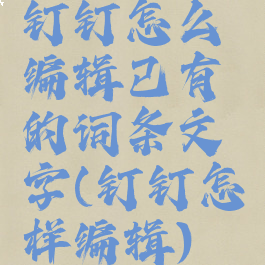 钉钉怎么
编辑已有
的词条文
字(钉钉怎
样编辑)